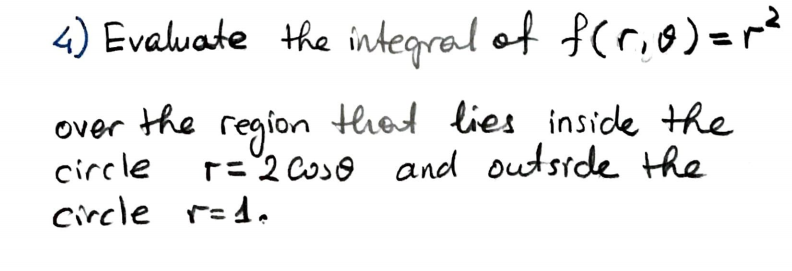 4) Evaluate the integral of f(r,θ)=r²
over the region that lies inside the
circle r=2cosθ and outside the
circle r=1.